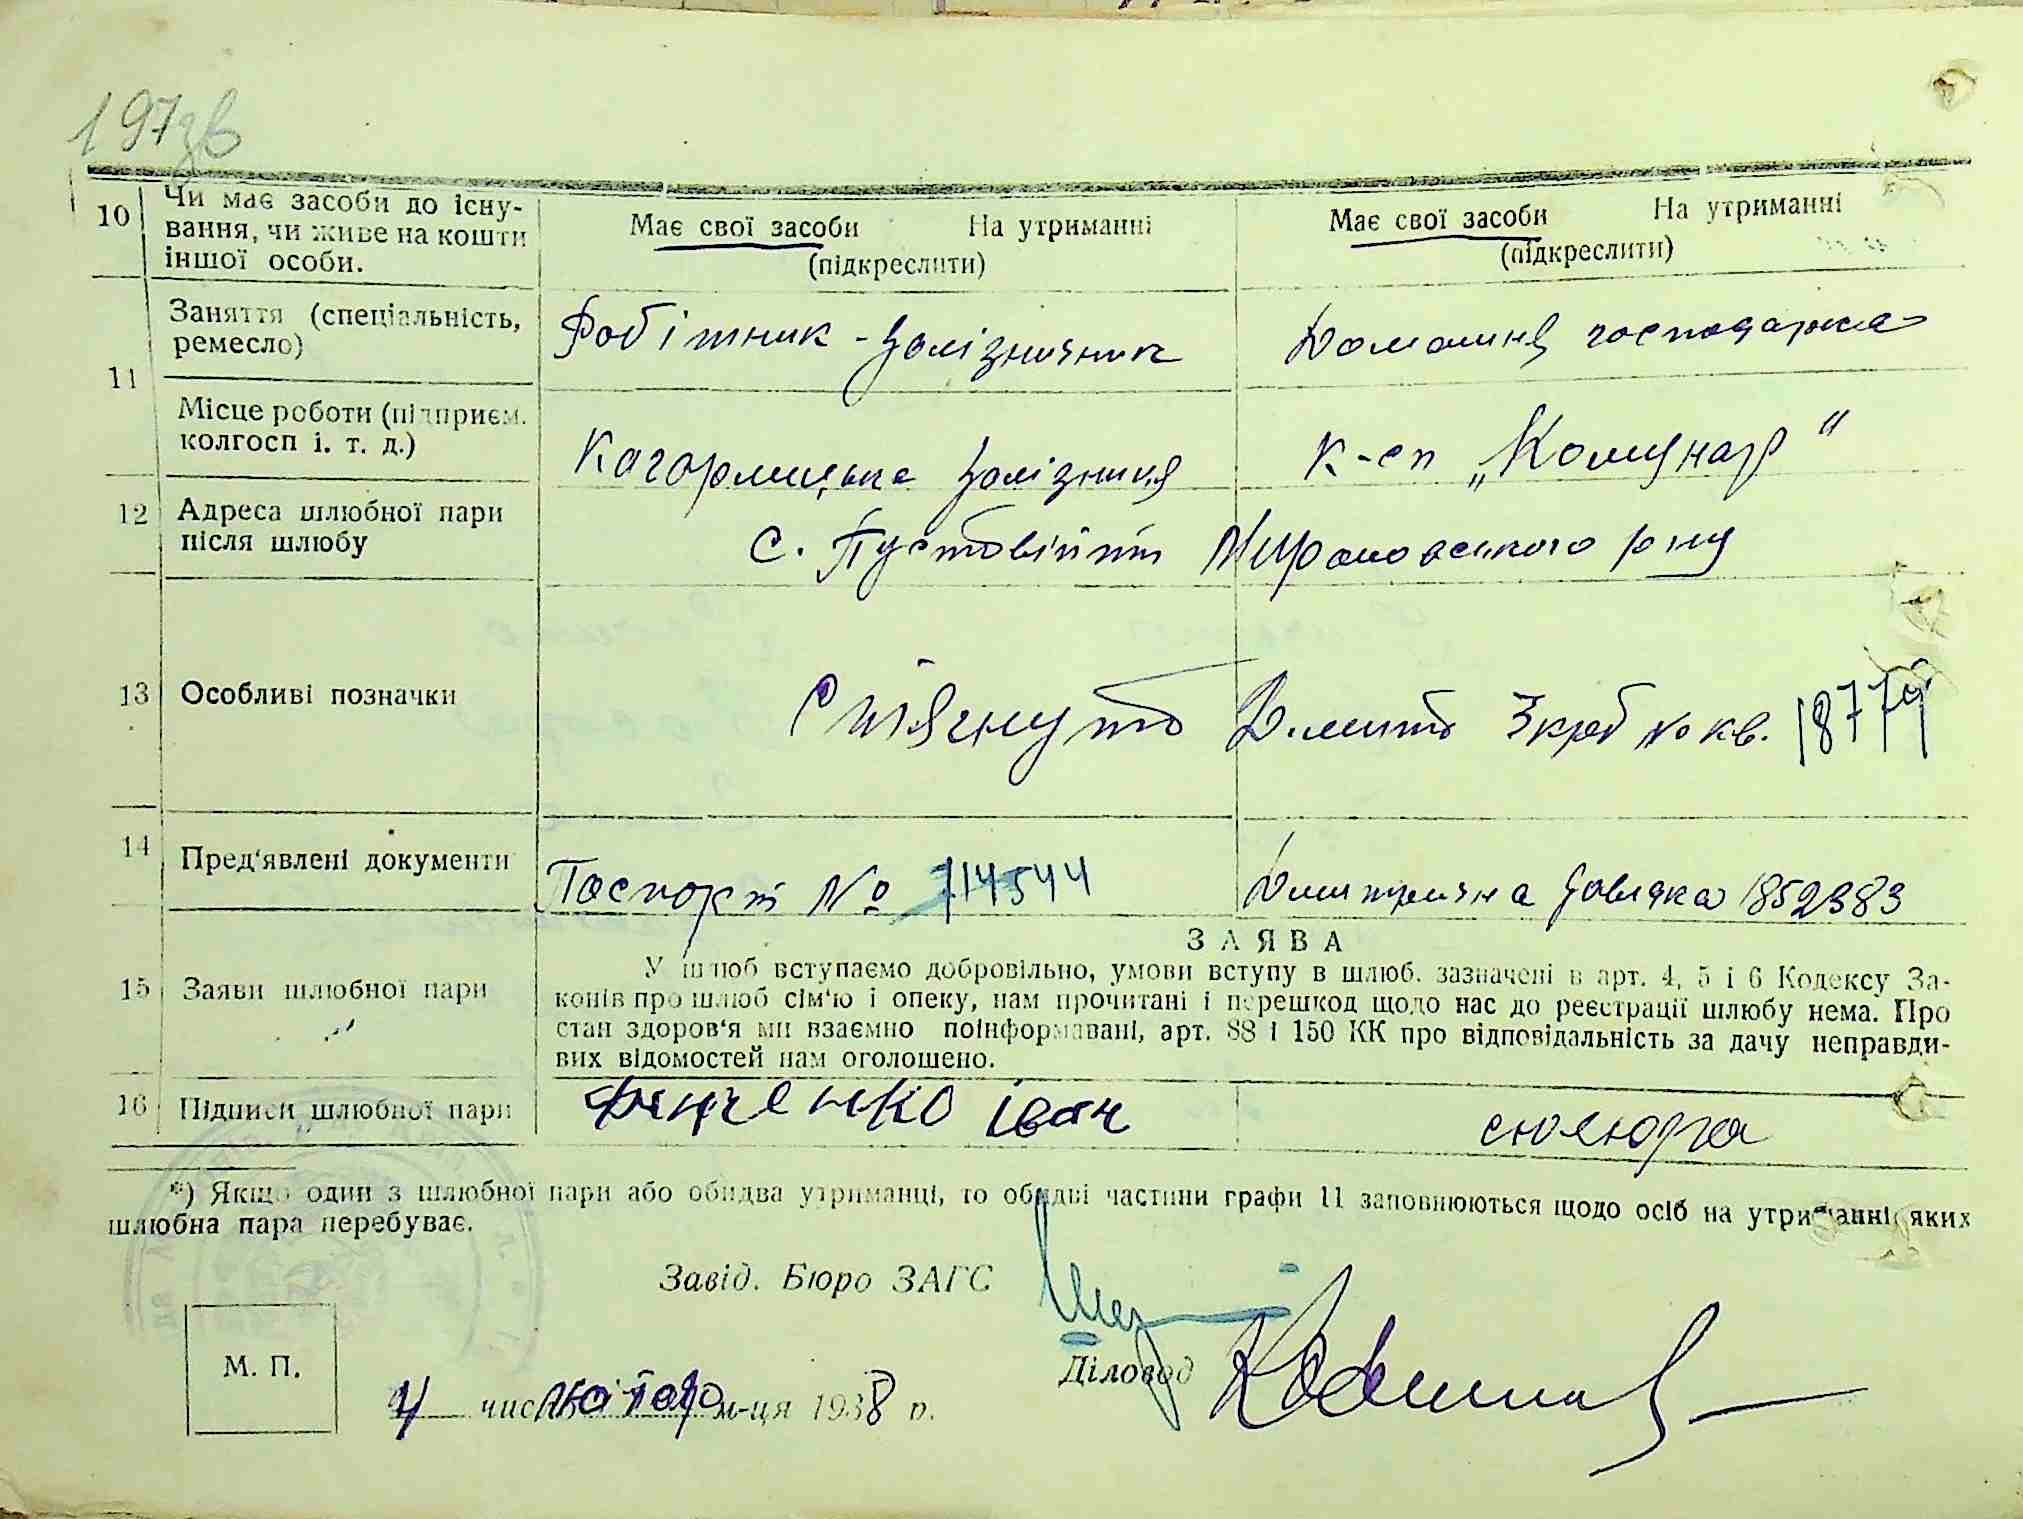 197зв
10 Чи має засоби до існу-
вання, чи живе на кошти
іншої особи.
Має свої засоби На утриманні
(підкреслити)
Має свої засоби На утриманні
(підкреслити)
11 Заняття (спеціальність,
ремесло)
Робітник - залізничник
Домашня господарка
Місце роботи (підприєм.
колгосп і. т. д.)
Кагорлицька залізниця
к-сп „Комунар"
12 Адреса шлюбної пари
після шлюбу
с. Пустовійти Мироновського р-ну
13 Особливі позначки
Стягнуто Д.мито 3 крб № кв. 18779
14 Пред'явлені документи
Паспорт № 714544
довідка 1852383
15 Заяви шлюбної пари
ЗАЯВА
У шлюб вступаємо добровільно, умови вступу в шлюб. зазначені в арт. 4, 5 і 6 Кодексу За-
конів про шлюб сім'ю і опеку, нам прочитані і перешкод щодо нас до реєстрації шлюбу нема. Про
стан здоров'я ми взаємно поінформавані, арт. 88 і 150 КК про відповідальність за дачу неправди-
вих відомостей нам оголошено.
16 Підписи шлюбної пари
Фенченко Іван
*) Якщо один з шлюбної пари або обидва утриманці, то обидві частини графи 11 заповнюються щодо осіб на утриманні яких
шлюбна пара перебуває.
Завід. Бюро ЗАГС
М. П.
Діловод
4 числа лютого м-ця 1938 р.